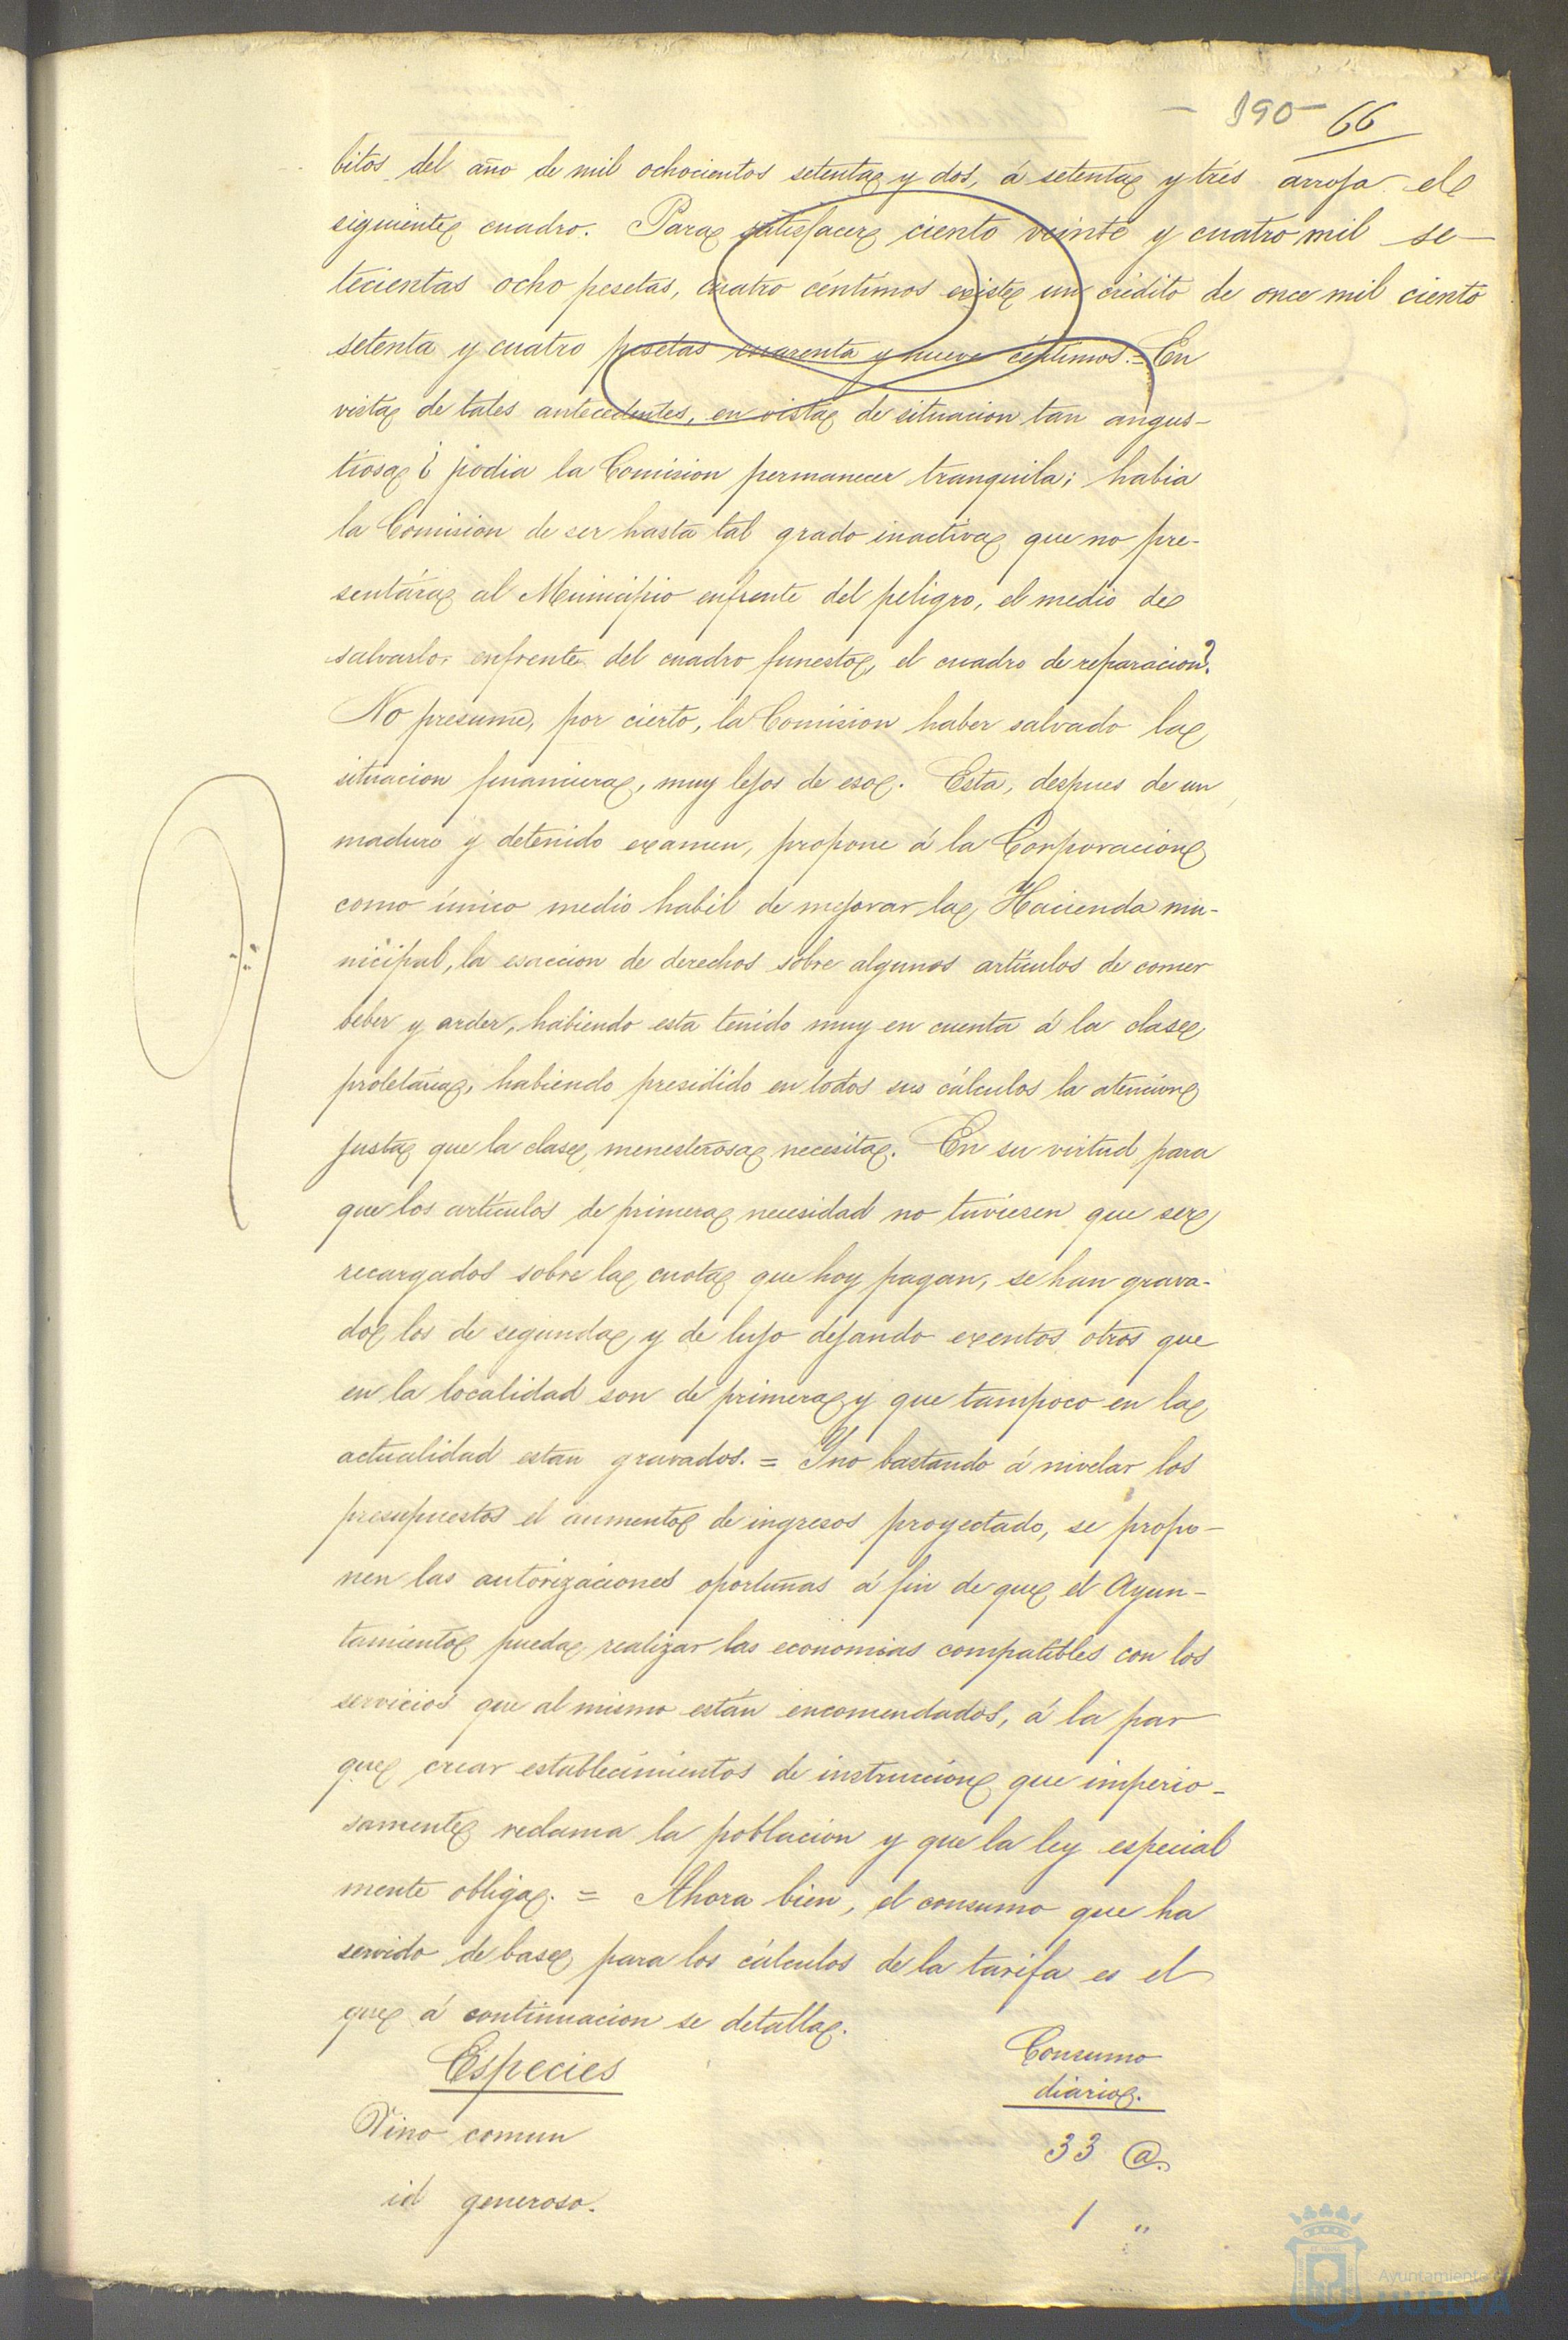 - 190 - 66
bitos del año de mil ochocientos setenta y dos, á setenta y tres arroja el
siguiente cuadro. Para satisfacer ciento veinte y cuatro mil se-
tecientas ocho pesetas, cuatro céntimos existe un crédito de once mil ciento
setenta y cuatro pesetas cuarenta y nueve céntimos. = En
vista de tales antecedentes, en vista de situacion tan angus-
tiosa ¿ podia la Comision permanecer tranquila; habia
la Comision de ser hasta tal grado inactiva que no pre-
sentára al Municipio enfrente del peligro, el medio de
salvarlo, enfrente del cuadro funesto, el cuadro de reparacion?.
No presume, por cierto, la Comision haber salvado la
situacion financiera, muy lejos de eso. Esta, despues de un
maduro y detenido examen, propone á la Corporacion
como único medio habil de mejorar la Hacienda mu-
nicipal, la esaccion de derechos sobre algunos artículos de comer
beber y arder, habiendo esta tenido muy en cuenta á la clase
proletaria, habiendo presidido en todos sus cálculos la atencion
justa que la clase menesterosa necesita. En su virtud para
que los artículos de primera necesidad no tuviesen que ser
recargados sobre la cuota que hoy pagan, se han grava-
do los de segunda y de lujo dejando exentos otros que
en la localidad son de primera y que tampoco en la
actualidad estan gravados. = Y no bastando á nivelar los
presupuestos el aumento de ingresos proyectado, se propo-
nen las autorizaciones oportunas á fin de que el Ayun-
tamiento pueda realizar las economias compatibles con los
servicios que al mismo están encomendados, á la par
que crear establecimientos de instruccion que imperio-
samente reclama la poblacion y que la ley especial
mente obliga. = Ahora bien, el consumo que ha
servido de base para los cálculos de la tarifa es el
que á continuacion se detalla.
Especies Consumo
diario.
Vino comun 33 @.
id generoso. 1 "
Ayuntamiento de
HUELVA